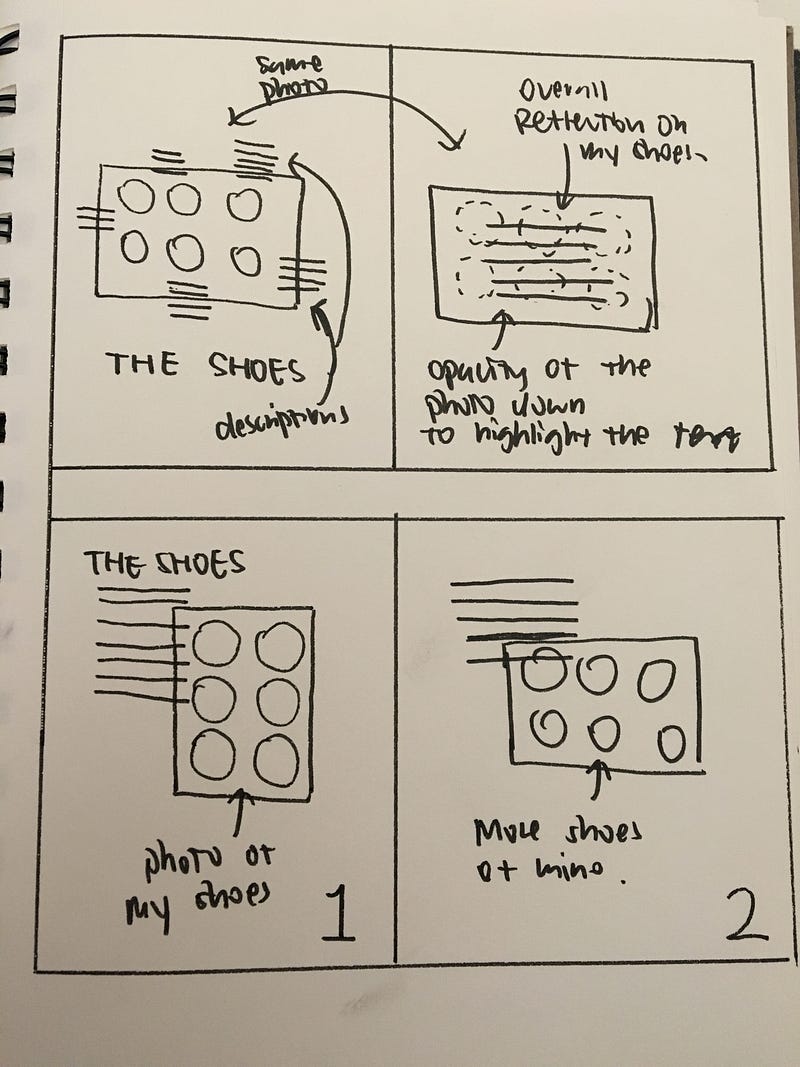 Same
photo
THE SHOES
descriptions
Overall
Reflection on
my shoes.
opacity of the
photo down
to highlight the text
THE SHOES
photo of
my shoes
1
More shoes
of mine.
2